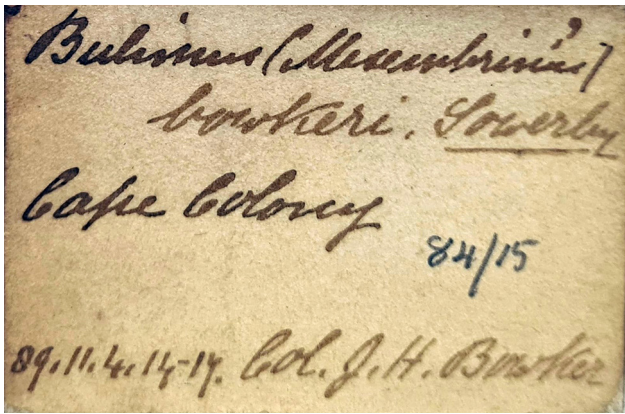 Bulimus (Mesembrinus?)
bowkeri. Sowerby
Cape Colony
84/15
89.11.4.14-17. Col. J. H. Bowker